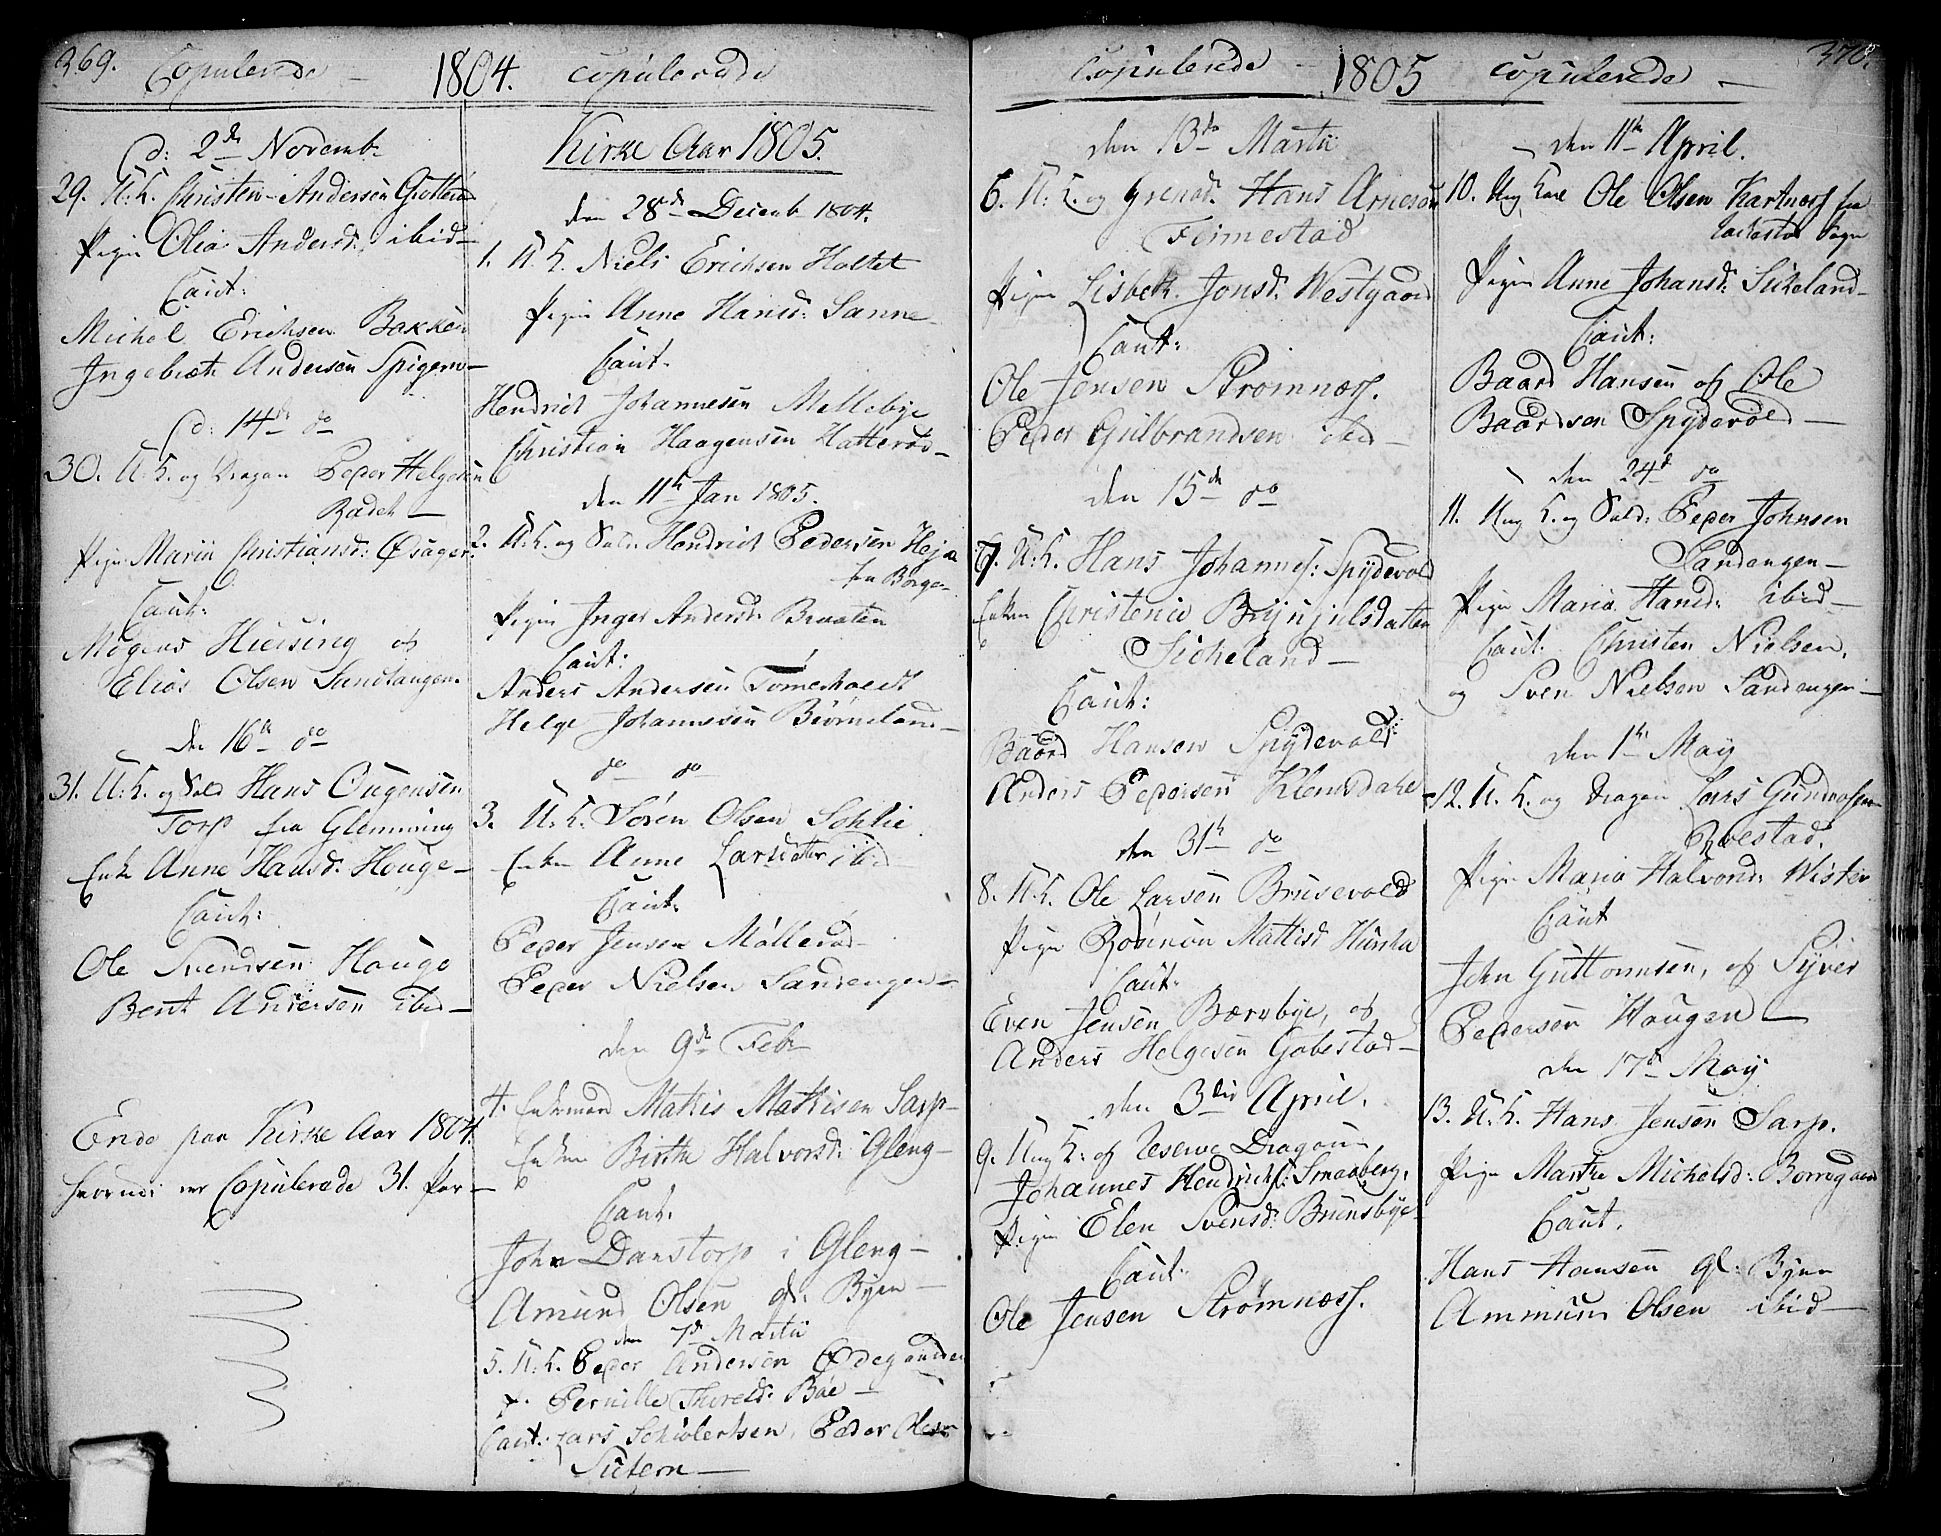 369. Copulerede — 1804. copulerede
d: 2de Novemb:
29. U:K. Christen Andersen
Pigen Olia Andersd: ibid—
Caut:
Michel Erichsen Bakken
Ingebreth Andersen Spigern—
d: 14de do
30. U:K. og Dragon Peder Helgesen
Bædeh—
Pigen Maria Christiansd:
Caut:
Mogens Hiersing og
Elias Olsen Sandtangen.
den 16de do
31. U:K. og Sold Hans Ougensen
Torp fra Glemming
Enke Anne Hansd: Houge—
Caut:
Ole Svendsen Houge
Bent Andersen ibid—
Ende paa Kirke Aar 1804.
hvorudi er Copulerede 31. Par—
Kirke Aar 1805.
den 28de Decemb 1804.
1. U.K. Niels Erichsen Holtet
Pigen Anne Hansd: Sanne
Caut.
Hendrich Johannesen Mellebye
Christian Haagensen Hatterød—
den 11te Jan 1805.
2. U:K. og Sold. Hendrich Pedersen Heja
fra Borge
Pigen Inger Andersd: Braaten
Caut:
Anders Andersen Tomerholdt
Helge Johannesen Biørneland—
do do
3. U:K. Søren Olsen Sohlie
Enken Anne Larsdatter ibid
Caut.
Peder Jensen Møllerød
Peder Nielsen Sandengen—
den 9de Febr
4. Enkemand Mathis Mathisen Sarp—
Enken Birthe Halvorsd: i Gleng—
Caut.
John Danstorp i Gleng—
Amund Olsen gl. Byen—
den 7de Martii
5. U:K. Peder Andersen Ødegaarden
P. Pernille Thoresd: Bøe—
Caut: Lars Schiølertsen, Peder Olesn
Sutern—
Copulerede 1805 copulerede — 370.
den 13de Martii
6. U:K. og Grenad. Hans Arnesøn
Feimestad
Pigen Lisbeth Jonsd: Westgaard
Caut:
Ole Jensen Strømnæss.
Peder Gulbrandsen ibid—
den 15de do
7. U:K. Hans Johanness: Spydevold
Enken Christenia Brynjulsdatter
Sicheland—
Caut:
Baard Hansen Spydevold
Anders Pedersen Klemsdahl
den 31te do
8. U.K. Ole Larsen Brusevold
Pigen Mattisd
Caut.
Even Jensen Bærnbye, og
Anders Helgesen Gabestad—
den 3die April.
9. Ung K: og Reserve Dragoun
Johannes Hendrichs: Smaaberg.
Pigen Elen Svensd: Brunsbye
Caut:
Ole Jensen Strømnæss.
den 11te April.
10. Ung Karl Ole Olsen Kartnæss fra
Rackestad Sogn
Pigen Anne Johansd: Sikeland—
Caut:
Baard Hansen og Ole
Baardsen Spydevold—
den 24de do
11. Ung K. og Sold: Peder Johnsen
Sandengen—
Pigen Maria Hansd: ibid—
Caut. Christen Nielsen,
og Sven Nielsen Sandengen—
den 1te May
12. U.K. og Dragon Lars Gundersen
Pigen Maria Halvorsd: Wister
Caut
John Guttormsen, og Syver
Pedersen Haugen—
den 17de May
13. U.K. Hans Jensen Sarp.
Pigen Marthe Michelsd: Borregaard
Caut.
Hans Hansen gl: Byen
Ammun Olsen ibid—